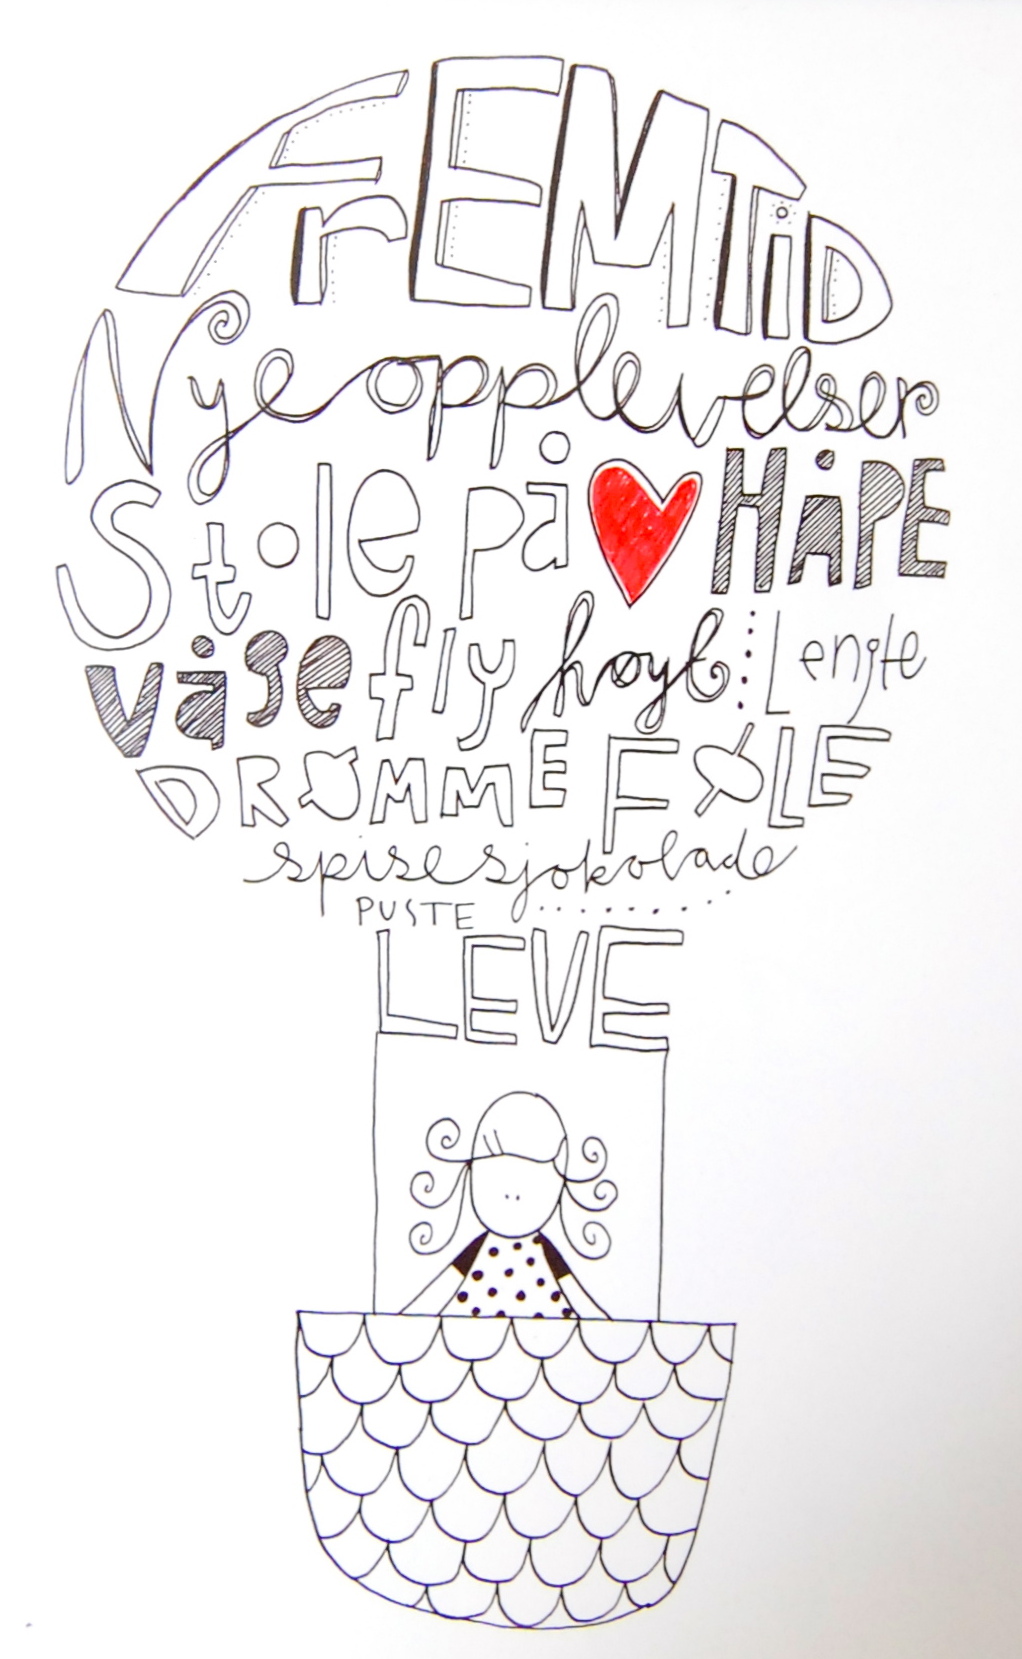 FrEMTiD
Nye opplevelser
Stole på HÅPE
våge fly høyt Lengte
DRØMME FØLE
spise sjokolade
PUSTE
LEVE